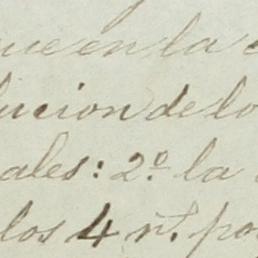 que en la
lucion de lo
ales: 2º la
los 4 rº. po